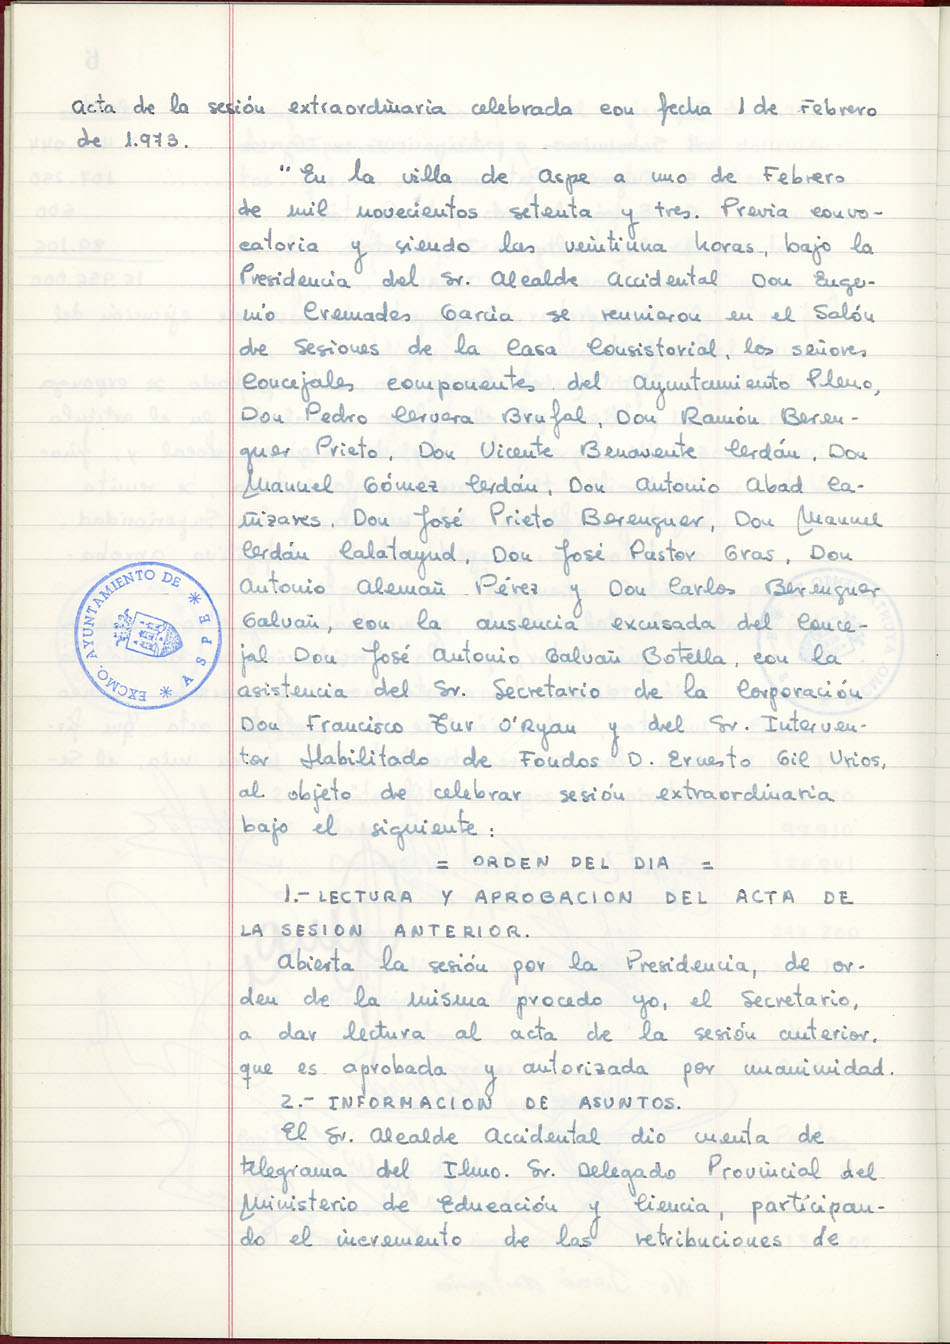 Acta de la sesión extraordinaria celebrada con fecha 1 de Febrero
de 1.973.
"En la villa de Aspe a uno de Febrero
de mil novecientos setenta y tres. Previa convo-
catoria y siendo las veintiuna horas, bajo la
Presidencia del Sr. Alcalde Accidental Don Euge-
nio Cremades Garcia se reunieron en el Salón
de Sesiones de la Casa Consistorial, los señores
Concejales componentes del Ayuntamiento Pleno,
Don Pedro Cervera Brufal, Don Ramón Beren-
guer Prieto, Don Vicente Benavente Cerdán, Don
Manuel Gómez Cerdán, Don Antonio Abad Ca-
ñizares, Don José Prieto Berenguer, Don Manuel
Cerdán Calatayud, Don José Pastor Gras, Don
Antonio Alemañ Pérez y Don Carlos Berenguer
Galvañ, con la ausencia excusada del Conce-
jal Don José Antonio Galvañ Botella, con la
asistencia del Sr. Secretario de la Corporación
Don Francisco Tur O'Ryan y del Sr. Interven-
tor Habilitado de Fondos D. Ernesto Gil Urios,
al objeto de celebrar sesión extraordinaria
bajo el siguiente:
= ORDEN DEL DIA =
1.- LECTURA Y APROBACION DEL ACTA DE
LA SESION ANTERIOR.
Abierta la sesión por la Presidencia, de or-
den de la misma procedo yo, el Secretario,
a dar lectura al acta de la sesión anterior,
que es aprobada y autorizada por unanimidad.
2.- INFORMACION DE ASUNTOS.
El Sr. Alcalde Accidental dio cuenta de
telegrama del Ilmo. Sr. Delegado Provincial del
Ministerio de Educación y Ciencia, participan-
do el incremento de las retribuciones de
EXCMO. AYUNTAMIENTO DE * ASPE *